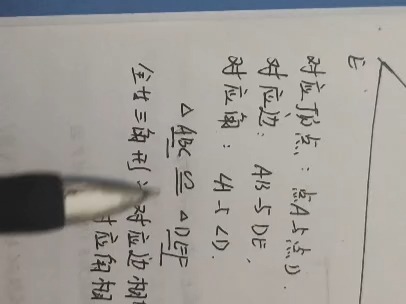 E
对应顶点：点A与点D.
对应边：AB与DE,
对应角：∠A与∠D.
△ABC≌△DEF
全等三角形：对应边相
对应角相